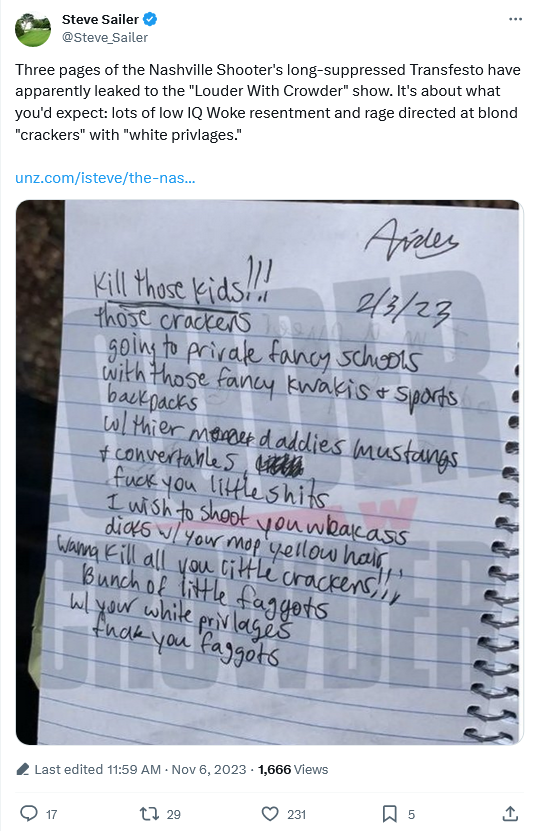 Steve Sailer
@Steve_Sailer
Three pages of the Nashville Shooter's long-suppressed Transfesto have
apparently leaked to the "Louder With Crowder" show. It's about what
you'd expect: lots of low IQ Woke resentment and rage directed at blond
"crackers" with "white privlages."
unz.com/isteve/the-nas...
Aiden
Kill those kids!!!
2/3/23
those crackers
going to private fancy schools
with those fancy kwakis + sports
backpacks
w/ thier daddies mustangs
+ convertables
fuck you little shits
I wish to shoot you wbakass
dicks w/ your mop yellow hair
wanna kill all you little crackers!!!
Bunch of little faggots
w/ your white privlages
fuck you faggots
LOUDER
W
CROWDER
Last edited 11:59 AM · Nov 6, 2023 · 1,666 Views
17 29 231 5